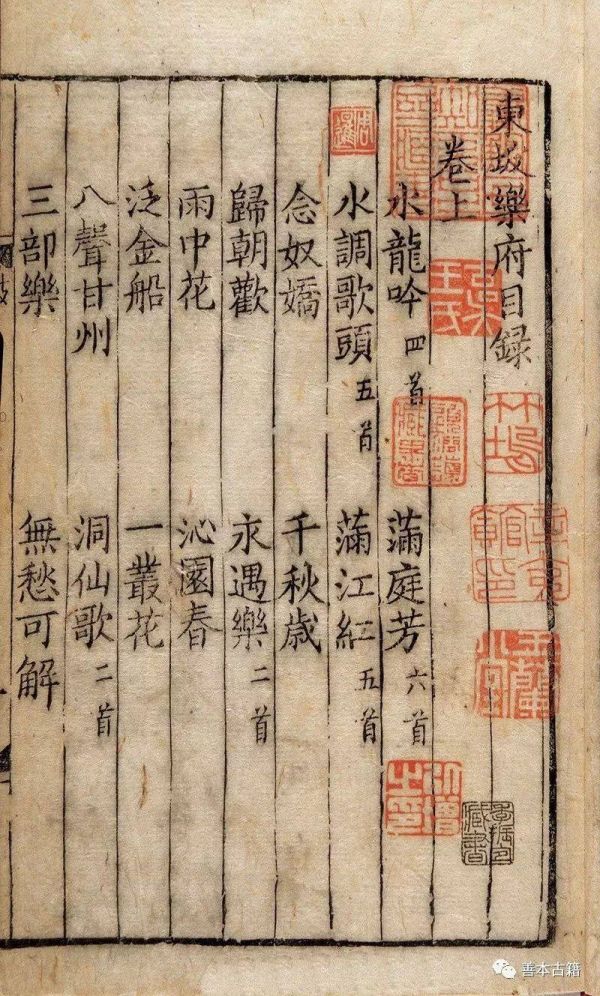 東坡樂府目録
卷上
水龍吟 四首 滿庭芳 六首
水調歌頭 五首 滿江紅 五首
念奴嬌 千秋歲
歸朝歡 永遇樂 二首
雨中花 沁園春
泛金船 一叢花
八聲甘州 洞仙歌 二首
三部樂 無愁可解
周暹
竹塢
善本古籍